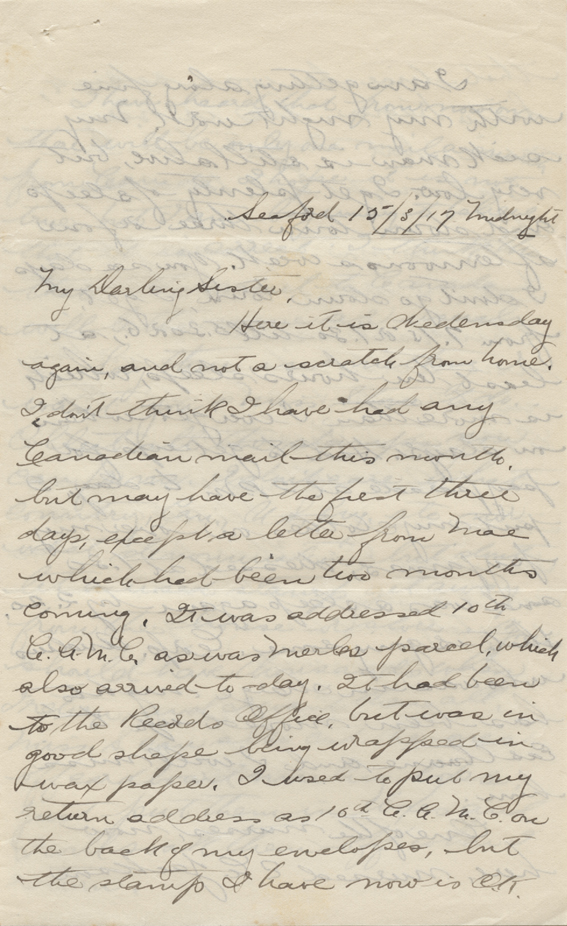 Seaford 15/8/17 Midnight
My Darling Sister,
Here it is Wedensday
again, and not a scratch from home.
I don't think I have had any
Canadian mail this month,
but may have the first three
days, except a letter from Mae
which had been two months
coming. It was addressed 10th
C.A.M.C. as was Merles parcel, which
also arrived to-day. It had been
to the Records Office, but was in
good shape being wrapped in
wax paper. I used to put my
return address as 10th C.A.M.C. on
the back of my envelopes, but
the stamp I have now is O.K.